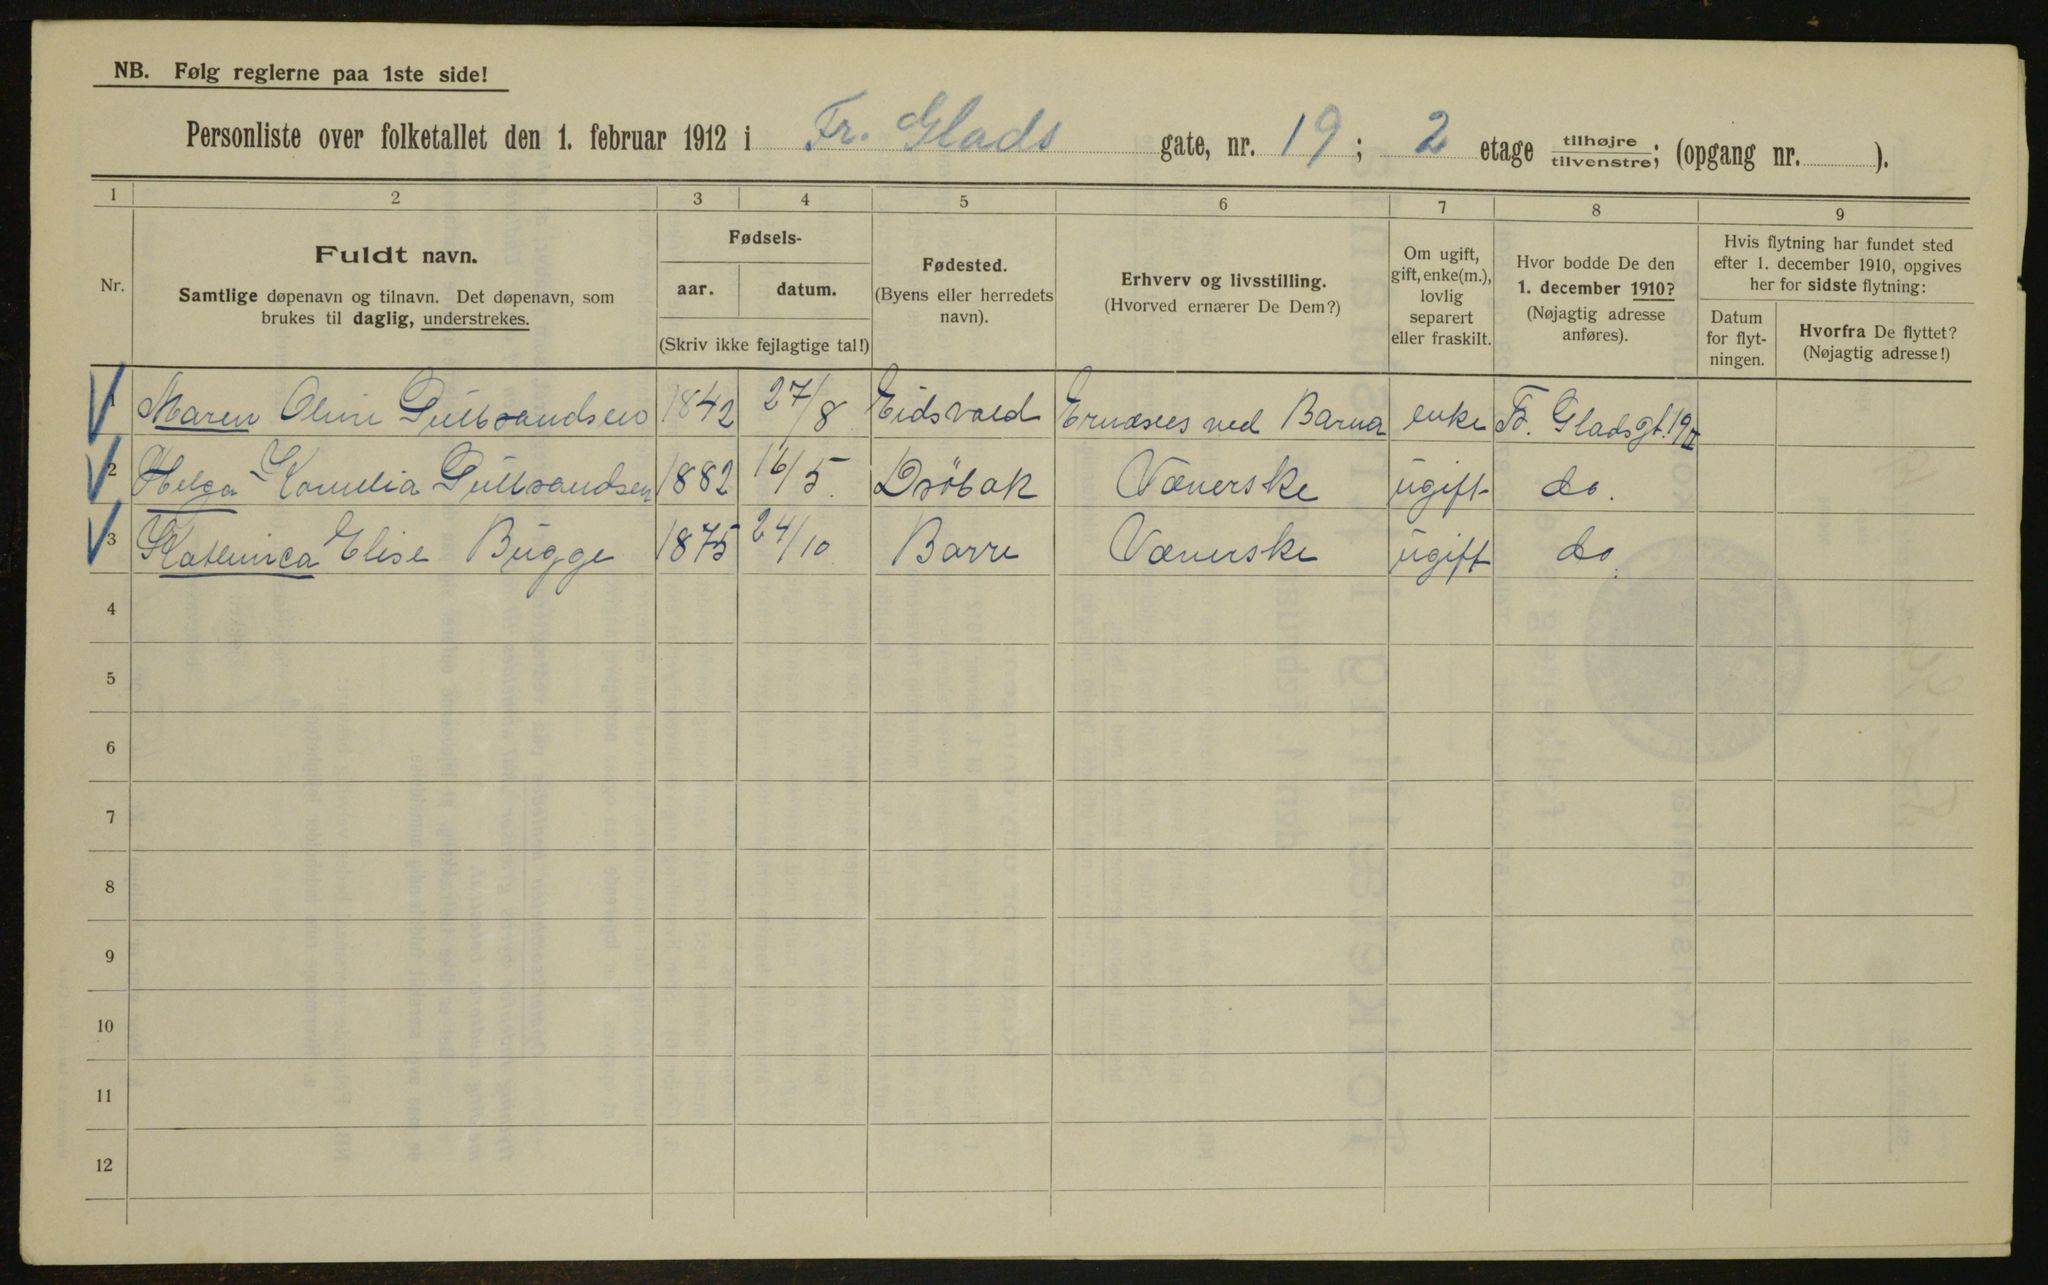 NB. Følg reglerne paa 1ste side!
Personliste over folketallet den 1. februar 1912 i Fr. Glads gate, nr. 19; 2 etage tilhøjre/tilvenstre; (opgang nr. ).
1 2 3 4 5 6 7 8 9
Nr.
Fuldt navn.
Samtlige døpenavn og tilnavn. Det døpenavn, som
brukes til daglig, understrekes.
Fødsels-
aar. datum.
(Skriv ikke fejlagtige tal!)
Fødested.
(Byens eller herredets
navn).
Erhverv og livsstilling.
(Hvorved ernærer De Dem?)
Om ugift,
gift, enke(m.),
lovlig
separert
eller fraskilt.
Hvor bodde De den
1. december 1910?
(Nøjagtig adresse
anføres).
Hvis flytning har fundet sted
efter 1. december 1910, opgives
her for sidste flytning:
Datum
for flyt-
ningen.
Hvorfra De flyttet?
(Nøjagtig adresse!)
1 Maren Olini Gulbrandsen 1842 27/8 Eidsvold Ernæres ved Barna enke Fr. Gladsgt. 19 II
2 Helga Kornelia Gulbrandsen 1882 16/5 Drøbak Væverske ugift do.
3 Elise Bugge 1875 24/10 Borre Væverske ugift do.
4
5
6
7
8
9
10
11
12